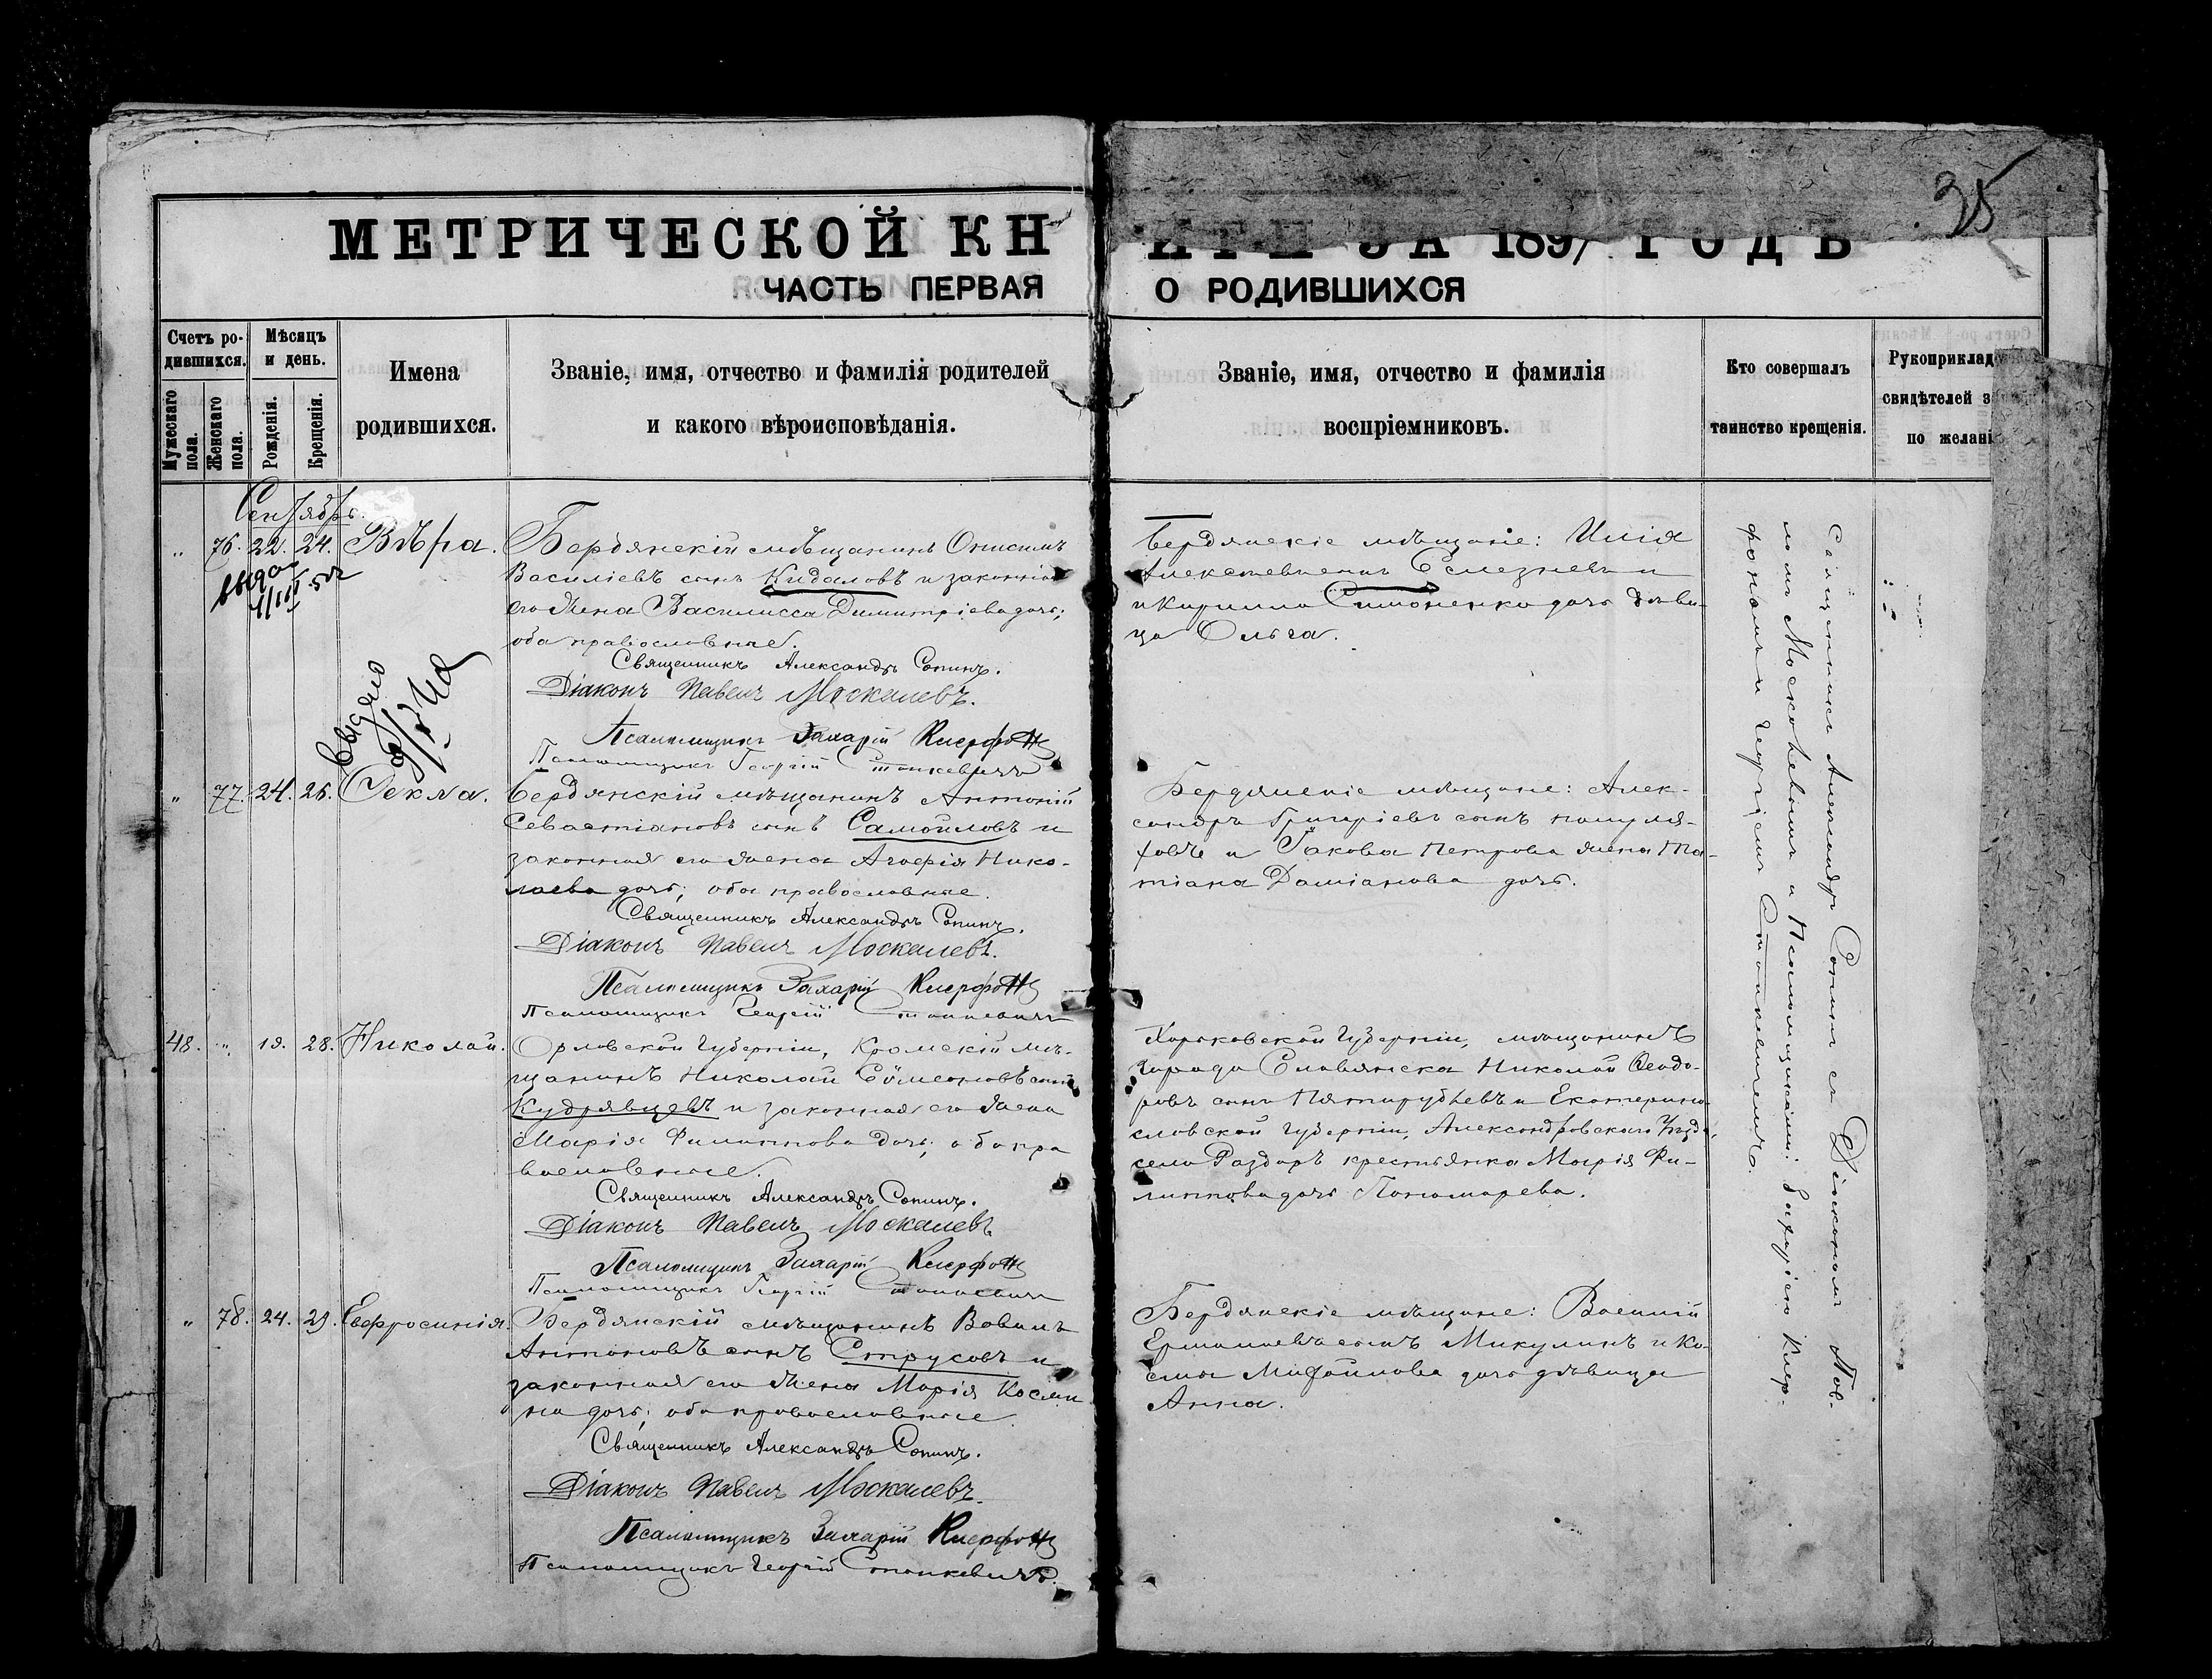 МЕТРИЧЕСКОЙ КН
ИГИ ЗА 1897 ГОДЪ
35
ЧАСТЬ ПЕРВАЯ
О РОДИВШИХСЯ
Счетъ ро-
дившихся.
Мужескаго
пола.
Женскаго
пола.
Мѣсяцъ
и день.
Рожденія.
Крещенія.
Имена
родившихся.
Званіе, имя, отчество и фамилія родителей
и какого вѣроисповѣданія.
Званіе, имя, отчество и фамилія
воспріемниковъ.
Кто совершалъ
таинство крещенія.
Рукоприклад
свидѣтелей з
по желані
Сентябрь
„ 76. 22. 24. Вѣра.
Бердянскій мѣщанинъ Онисимъ
Василіевъ сынъ Кидаловъ и законная
его жена Василисса Димитріева дочь;
оба православные.
Священникъ Александръ Сопинъ.
Діаконъ Павелъ Москалевъ.
Псаломщикъ Захарій
Псаломщикъ Георгій Станкевичъ
Бердянскіе мѣщане: Илія
Селезневъ и
Кирилла Симоненко дочь дѣви-
ца Ольга.
„ 77. 24. 26. Ѳекла.
Бердянскій мѣщанинъ Антоній
Севастіановъ сынъ Самойловъ и
законная его жена Агафія Нико-
лаева дочь; оба православные.
Священникъ Александръ Сопинъ.
Діаконъ Павелъ Москалевъ.
Псаломщикъ Захарій
Псаломщикъ Георгій Станкевичъ
Бердянскіе мѣщане: Алек-
сандръ Григоріевъ сынъ
и Іакова Петрова жена Та-
тіана Даміанова дочь.
48. „ 19. 28. Николай.
Орловской Губерніи, Кромскій мѣ-
щанинъ Николай Сѵмеоновъ сынъ
Кудрявцевъ и законная его жена
Марія Филиппова дочь; оба пра
вославные.
Священникъ Александръ Сопинъ.
Діаконъ Павелъ Москалевъ.
Псаломщикъ Захарій
Псаломщикъ Георгій Станкевичъ
Харьковской Губерніи, мѣщанинъ
города Славянска Николай Ѳеодо-
ровъ сынъ Пятирублевъ и Екатерино
славской Губерніи, Александровскаго Уѣзда,
села Раздоръ крестьянка Марія Фи-
липпова дочь Пономарева.
„ 78. 24. 29. Евфросинія.
Бердянскій мѣщанинъ Вавилъ
Антоновъ сынъ Струсовъ и
законная его жена Марія Косми
на дочь; оба православные
Священникъ Александръ Сопинъ.
Діаконъ Павелъ Москалевъ.
Псаломщикъ Захарій
Псаломщикъ Георгій Станкевичъ.
Бердянскіе мѣщане: Василій
Ермолаевъ сынъ Микулинъ и Ко-
смы Михайлова дочь дѣвица
Анна.
Священникъ Александръ Сопинъ съ Діакономъ Пав-
ломъ Москалевымъ и Псаломщиками: Захаріею
и Георгіемъ Станкевичемъ.